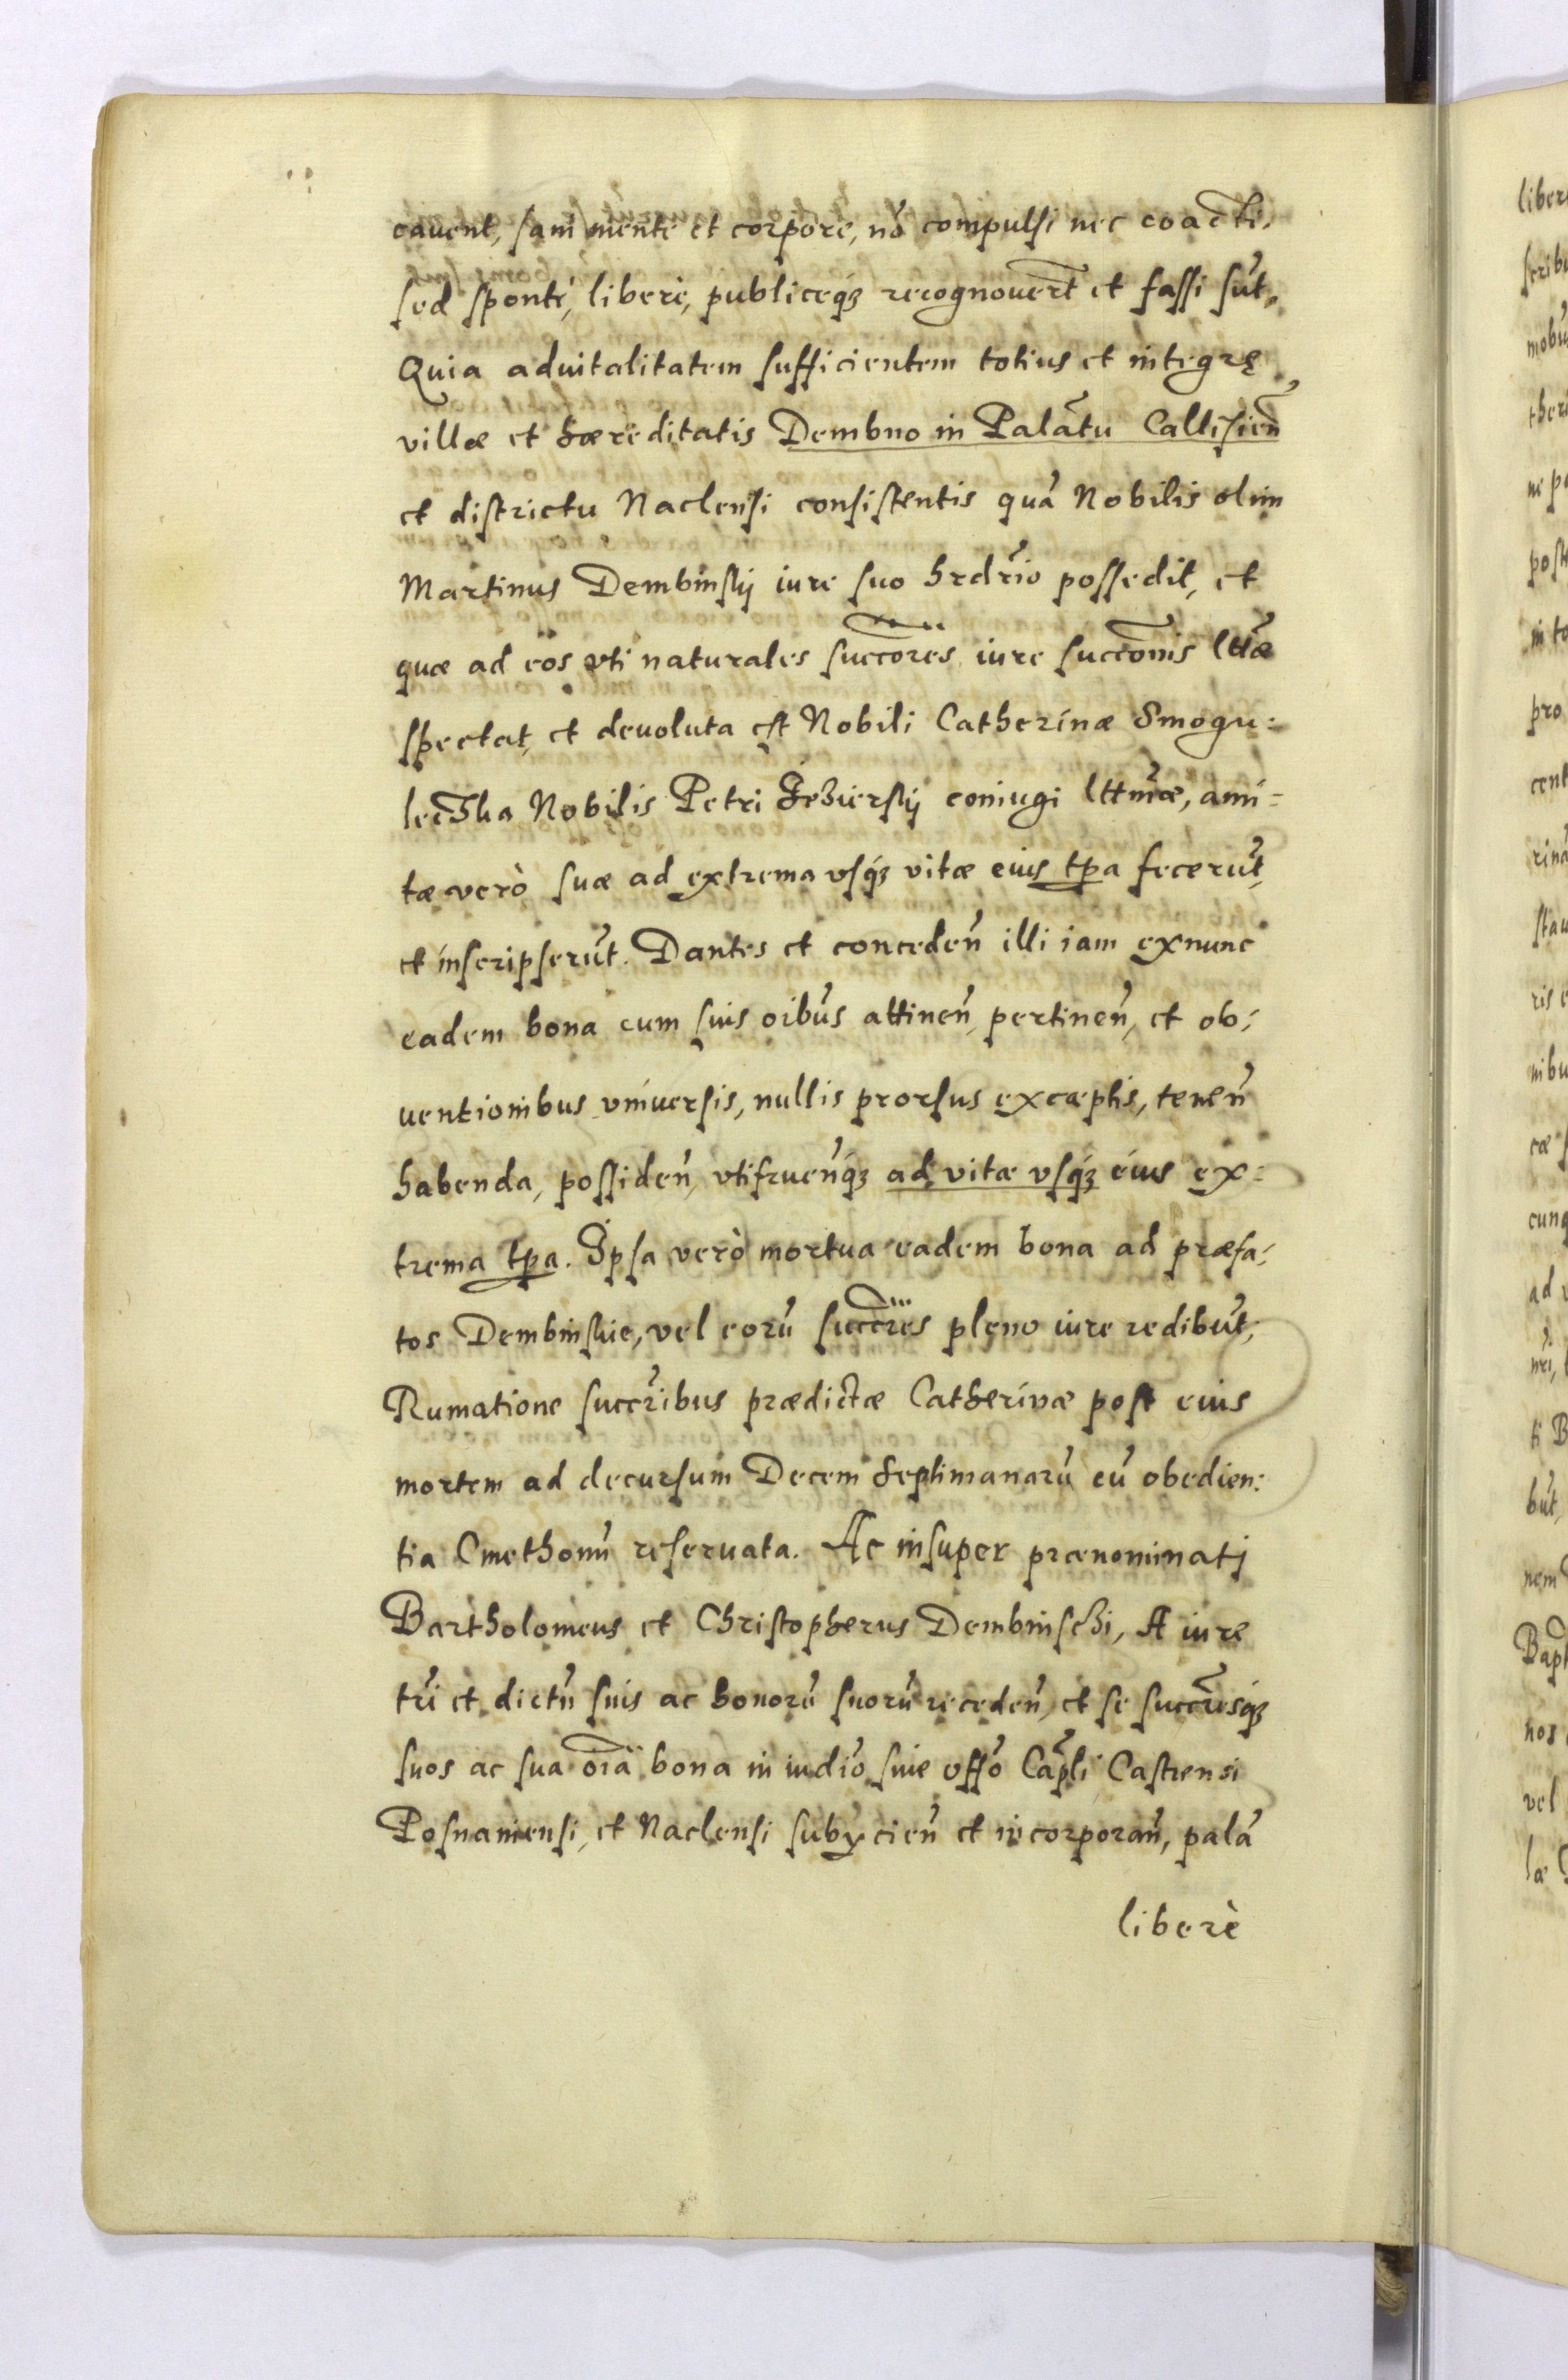 cauent, sani mente et corpore, nō compulsi nec coacti,
sed sponte, liberè, publiceq́ꝫ recognouert̃ et fassi sūt,
Quia aduitalitatem sufficientem totius et integrę
villæ et hæreditatis Dembno in Palātu Callisien̄
et districtu Naclensi consistentis quā Nobilis olim
Martinus Dembinskij iure suo hrdrĩo possedit, et
quæ ad eos vti naturales succōres iure succōnis lttæ̃
spectat, et deuoluta est Nobili Catherinæ Smogu:
lecska Nobilis Petri Jezierskij coniugi lttmæ̃, ami=
tæ verò suæ ad extrema vsq́ꝫ vitæ eius tp̱a fecerūt,
et inscripserūt. Dantes et conceden̄ illi iam exnunc
eadem bona cum suis oibũs attinen̄, pertinen̄, et ob:
uentionibus vniuersis, nullis prorsus exceptis, tenen̄
habenda, possiden̄, vtifruen̄q́ꝫ ad vitæ vsq́ꝫ eius ex:
trema tp̱a. Ipsa verò mortua eadem bona ad præfa:
tos Dembinskie, vel eorū succr̃es pleno iure redibūt,
Rumatione succrĩbus prædictæ Catherinæ post eius
mortem ad decursum Decem Septimanarū cū obedien:
tia Cmethonū reseruata. Ac insuper prænominatj
Bartholomeus et Christopherus Dembinschi, A iure
trĩ et dictũ suis ac bonorū suorū receden̄, et se succr̃esq́ꝫ
suos ac sua oīa bona in iudīo siue offō Cap̄li Castrensi
Posnaniensi, et Naclensi subijcien̄ et incorporan̄, palā
liberè